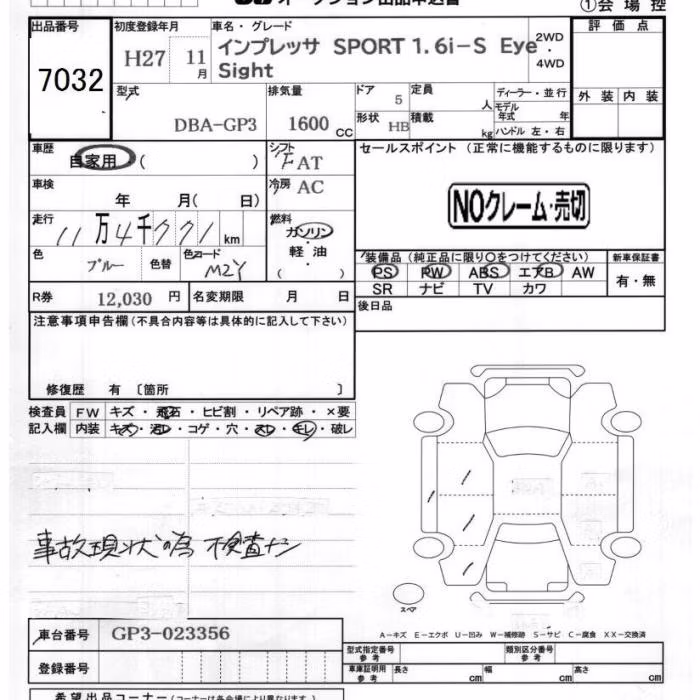 オークション出品申込書
①会場控
出品番号 初度登録年月 車名・グレード 評価点
7032 H27 11月 インプレッサ SPORT 1.6i-S Eye Sight 2WD・4WD
型式 排気量 ドア 定員 ディーラー・並行 外装 内装
DBA-GP3 1600 CC 5 人 モデル年式 年
形状 HB 積載 kg ハンドル 左・右
車歴 自家用 ( ) シフト FAT セールスポイント (正常に機能するものに限ります)
車検 年 月( 日) 冷房 AC
NOクレーム・売切
走行 11万4千771 km 燃料 ガソリン 軽・油 ( )
色 ブルー 色替 色コード M2Y
装備品 (純正品に限り○をつけてください) 新車保証書
PS PW ABS エアB AW 有・無
SR ナビ TV カワ
R券 12,030 円 名変期限 月 日 後日品
注意事項申告欄 (不具合内容等は具体的に記入して下さい)
修復歴 有 〔箇所 〕
検査員 FW キズ・飛石・ヒビ割・リペア跡・×要
記入欄 内装 キズ・汚レ・コゲ・穴・スレ・キレ・破レ
事故現状の為 検査ナシ
スペア
A-キズ E-エクボ U-凹み W-補修跡 S-サビ C-腐食 XX-交換済
車台番号 GP3-023356
型式指定番号 参考 類別区分番号 参考
登録番号
車庫証明用 参考 長さ cm 幅 cm 高さ cm
希望出品コーナー (コーナーは各会場により異なります)